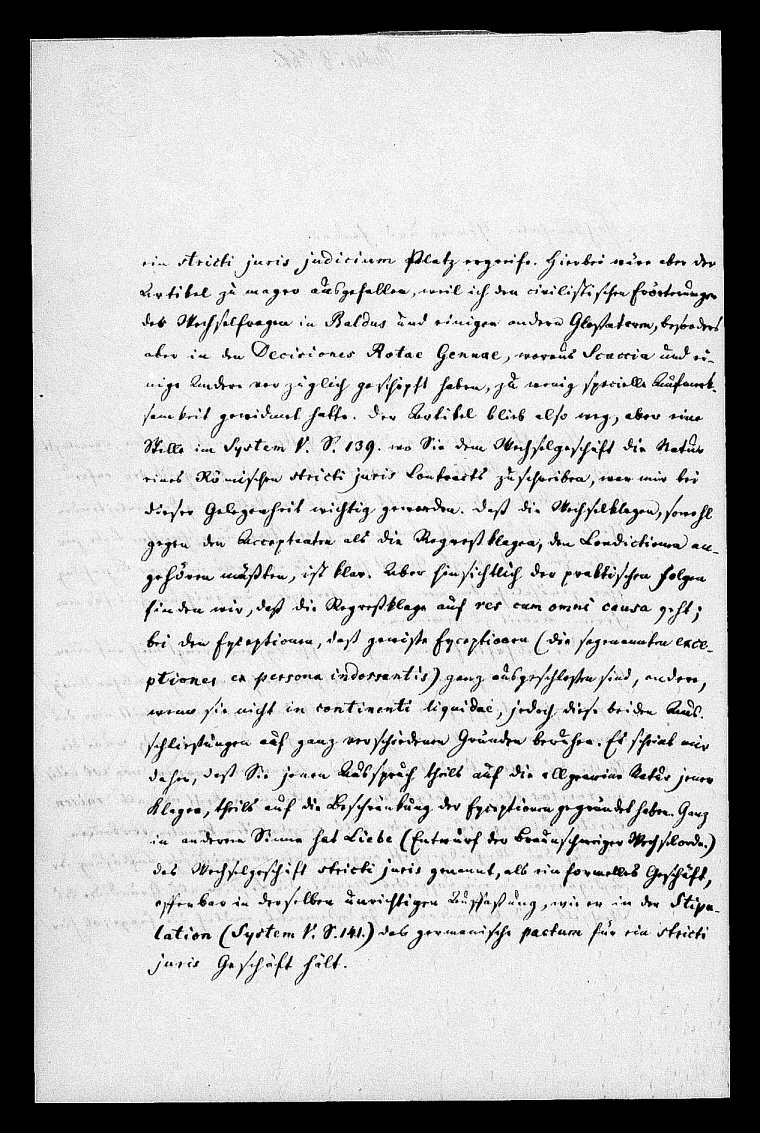 ein stricti juris judicium Platz ergreife. Hierbei wäre aber der
Artikel zu mager ausgefallen, weil ich den civilistischen Erörterungen
des Wechselfragen in Baldus und einigen andern Glossatoren, besonders
aber in den Decisiones Rotae Genuae, woraus Scaccia und ei-
nige Andere vorzüglich geschöpft haben, zu wenig specielle Aufmerk-
samkeit gewidmet hatte. Der Artikel blieb also weg, aber eine
Stelle im System V. S. 139. wo Sie dem Wechselgeschäft die Natur
eines Römischen stricti juris Contracts zuschreiben, war mir bei
dieser Gelegenheit wichtig geworden. Daß die Wechselklagen, sowohl
gegen den Acceptanten als die Regreßklagen, den Condictionen an-
gehören müßten, ist klar. Aber hinsichtlich der praktischen Folgen
finden wir, daß die Regreßklage auf res cum omni causa geht;
bei den Exceptionen, daß gewisse Exceptionen (die sogenannten exce-
ptiones ex persona indossantis) ganz ausgeschlossen sind, andere,
wenn sie nicht in continenti liquidae, jedoch diese beiden Aus-
schließungen auf ganz verschiedenen Gründen beruhen. Es schien mir
daher, daß Sie jenen Ausspruch theils auf die allgemeine Natur jener
Klagen, theils auf die Beschränkung der Exceptionen gegründet haben. Ganz
in anderem Sinne hat Liebe (Entwurf der Braunschweiger Wechselordn.)
das Wechselgeschäft stricti juris genannt, als ein formelles Geschäft,
offenbar in derselben unrichtigen Auffassung, wie er in der Stipu-
lation (System V. S. 141.) das germanische pactum für ein stricti
juris Geschäft hält.